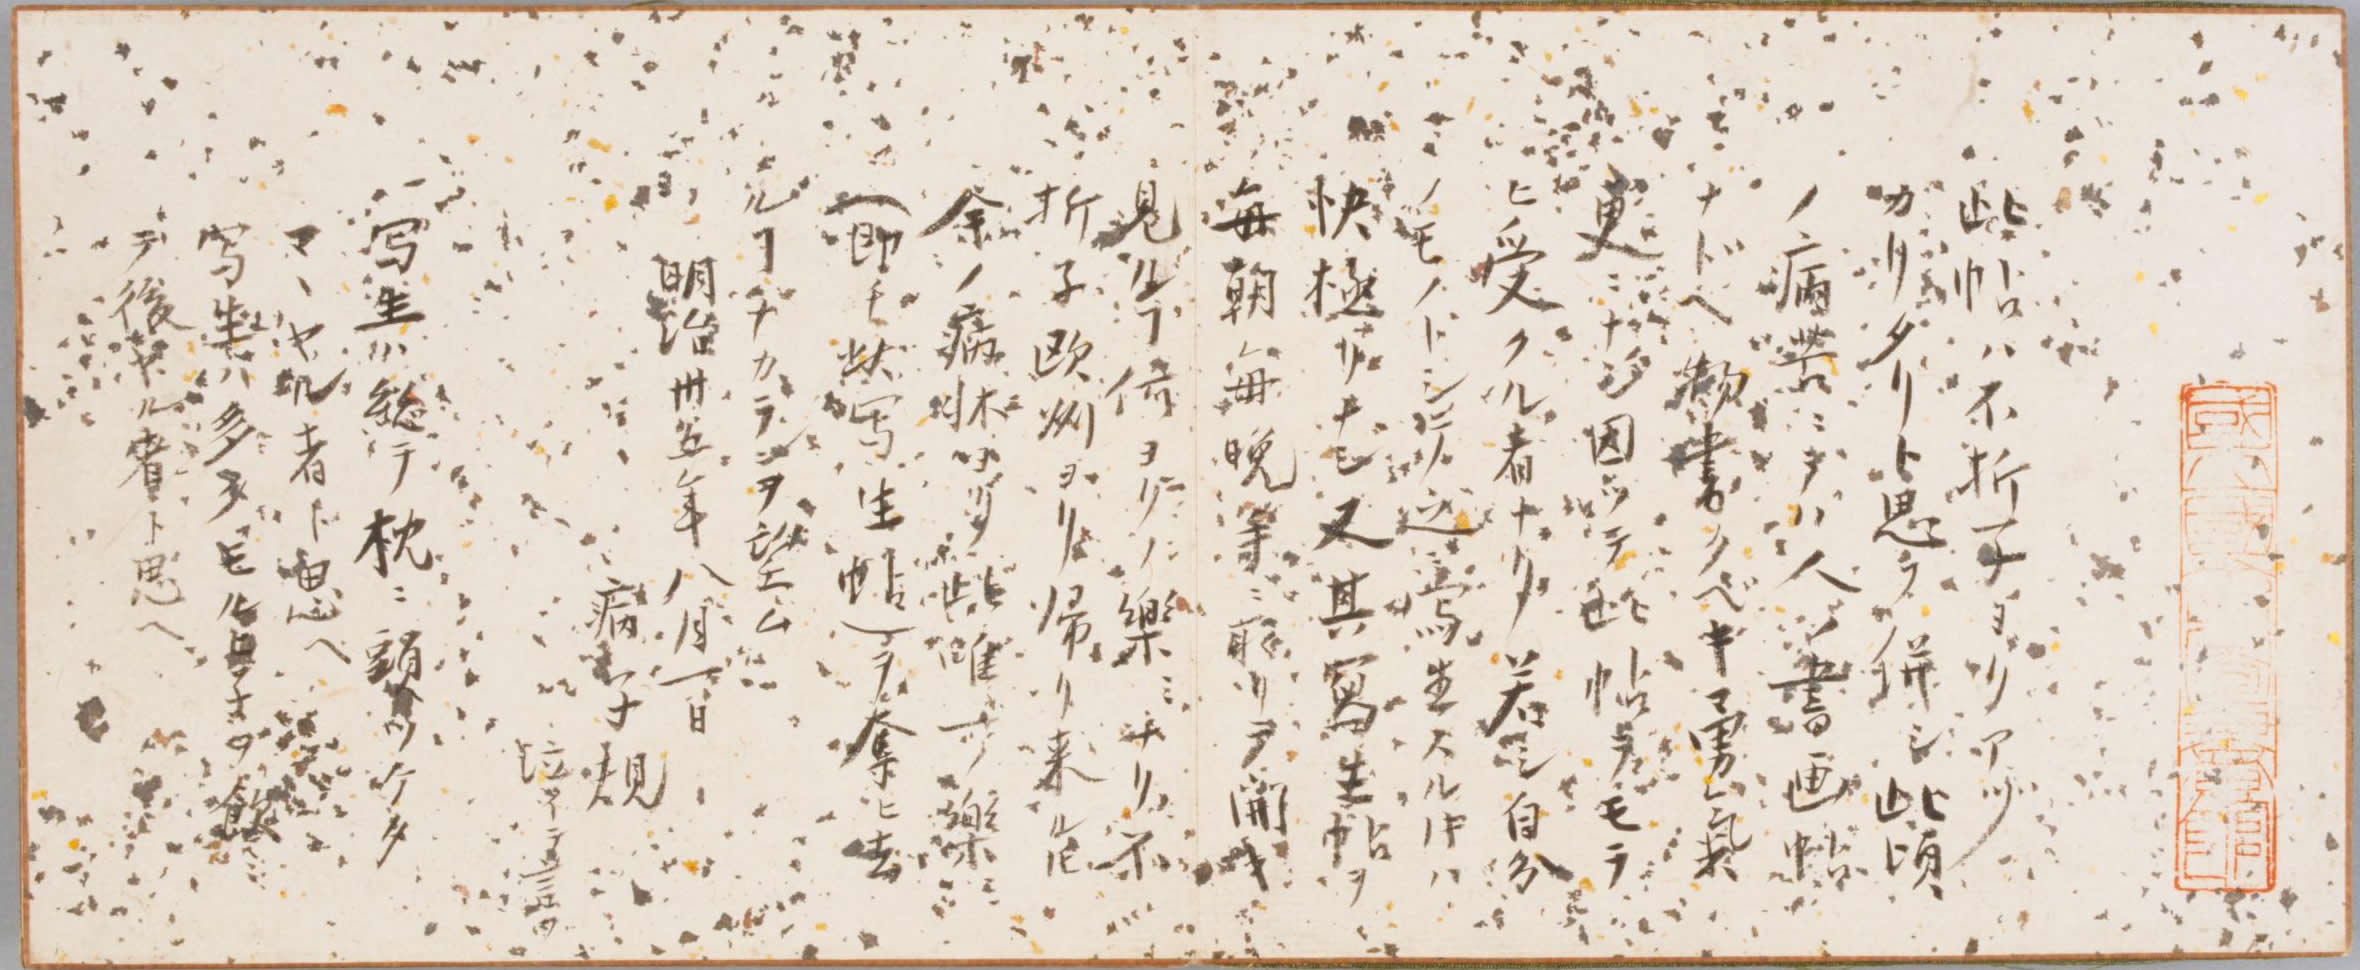 此帖ハ不折子ヨリアヅ
カリタリト思ヲ併シ此頃
ノ病苦ニテハ人ノ書画帖
ナドヘ物書クベキ勇氣
更ニナシ因ッテ此帖ヲモラ
ヒ受クル者ナリ若シ自分
ノモノトシテ之ニ寫生スルトキハ
快極リナシ又其寫生帖ヲ
毎朝毎晩手ニ取リテ開キ
見ルヿ何ヨリノ樂ミナリ不
折子欧州ヨリ帰リ来ルトモ
余ノ病牀ヨリ此唯一ノ樂ミ
(即チ此写生帖)ヲ奪ヒ去
ルヿナカランヲ望ム
明治卅五年八月一日
病子規
泣イテ言フ
一 写生ハ総テ枕ニ頭ツケタ
マヽヤル者ト思ヘ
一 写生ハ多クモルヒ子ヲ飲ミ
テ後ヤル者ト思ヘ